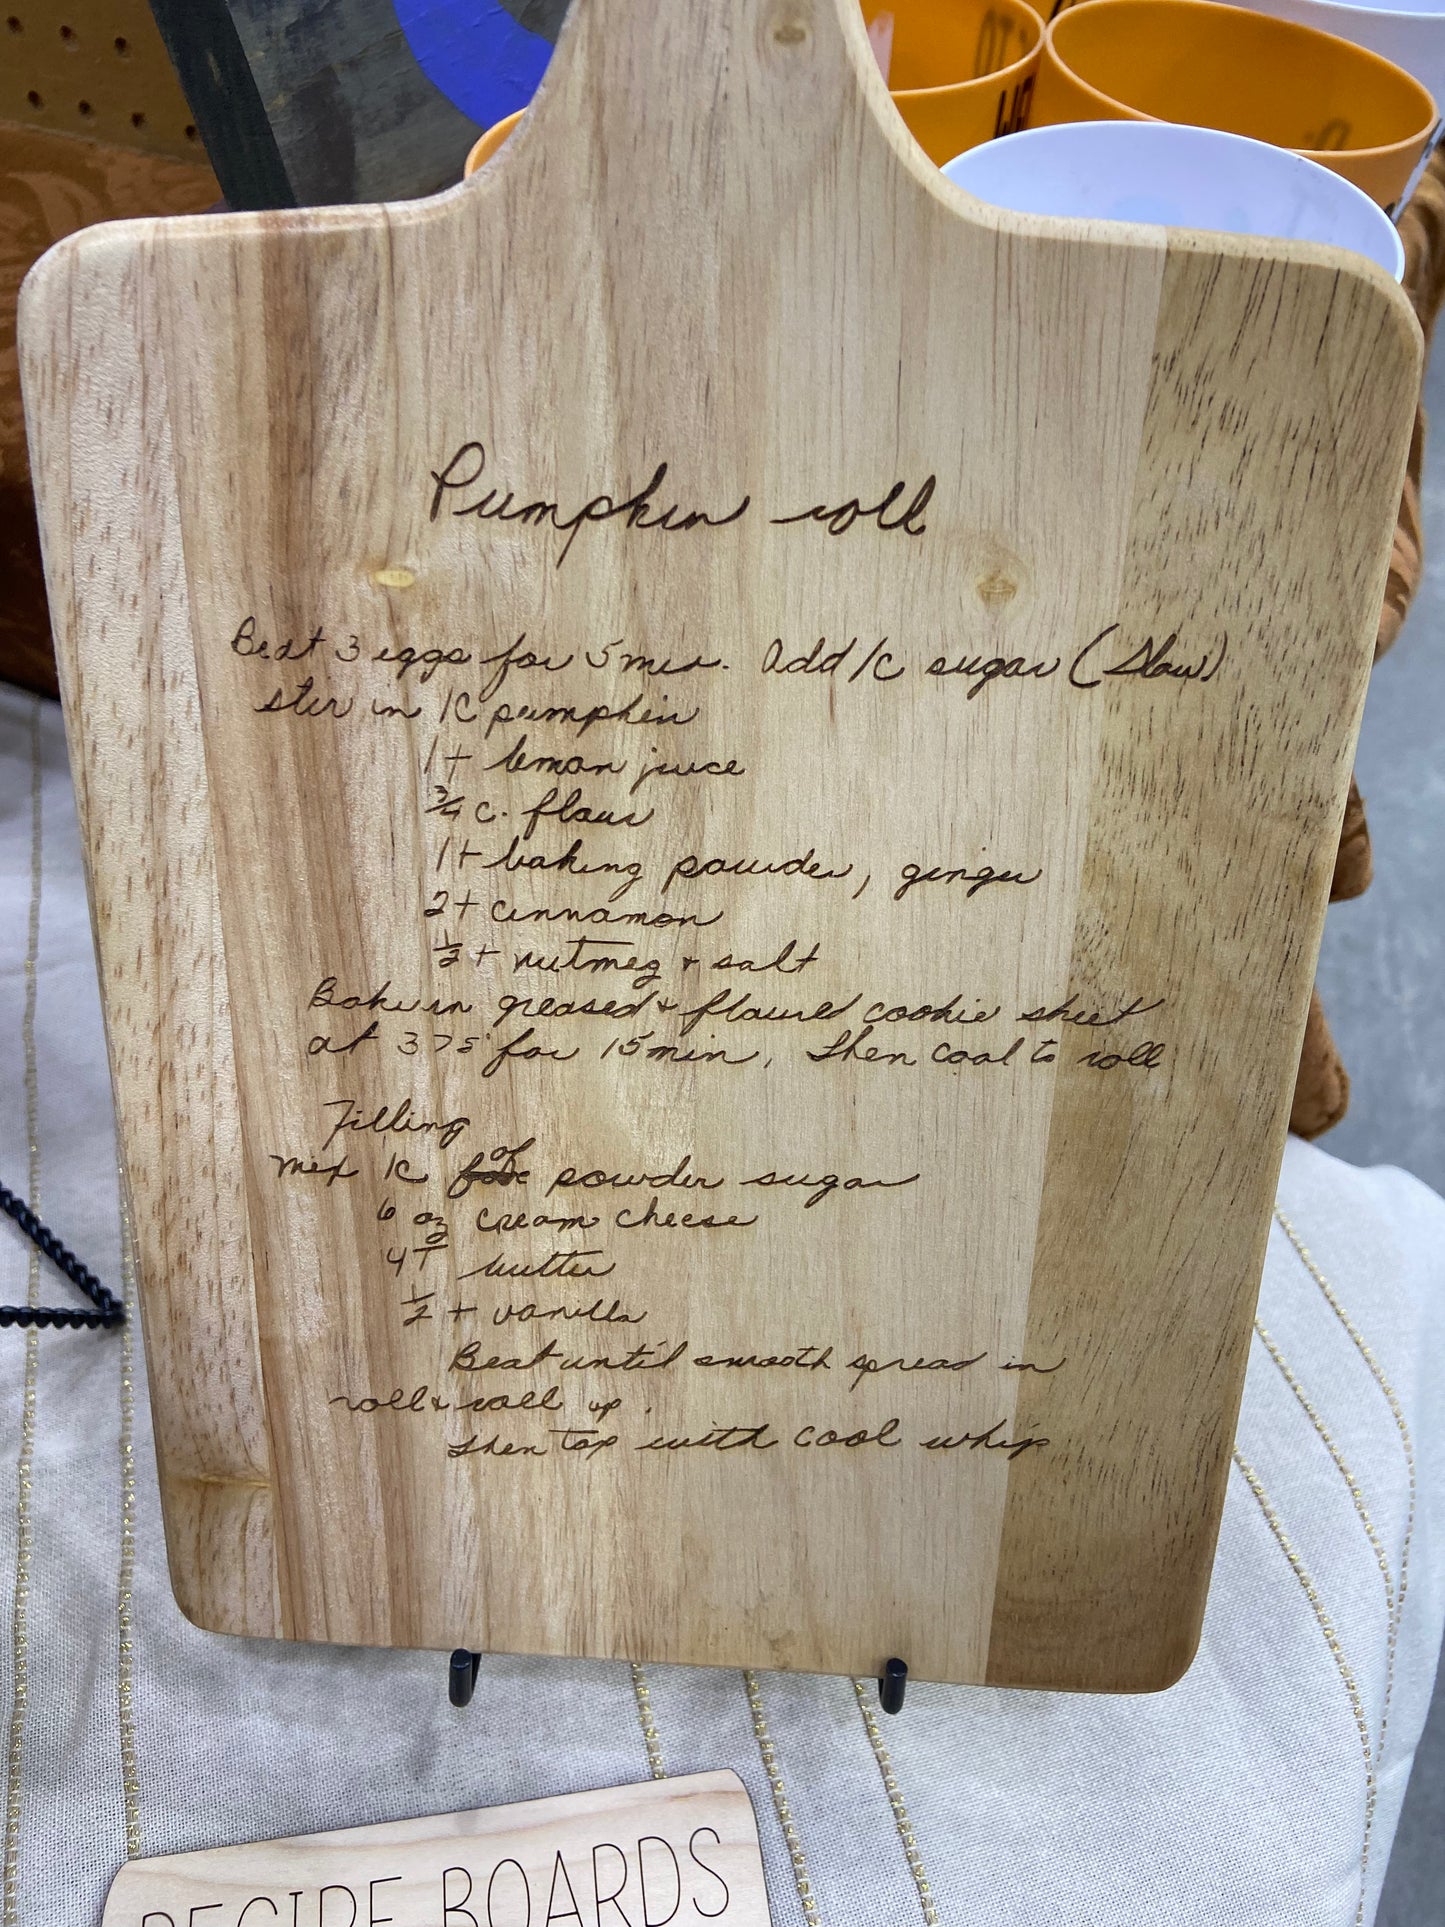 Pumpkin roll
Beat 3 eggs for 5 min. Add 1c sugar (Slow)
stir in 1c pumpkin
1t lemon juice
3/4 c. flour
1t baking powder, ginger
2t cinnamon
1/2 t nutmeg + salt
Bake in greased + floured cookie sheet
at 375 for 15 min, then cool to roll
Filling
mix 1c of powder sugar
6 oz cream cheese
4T butter
1/2 t vanilla
Beat until smooth spread in
roll + roll up.
then top with cool whip
RECIPE BOARDS